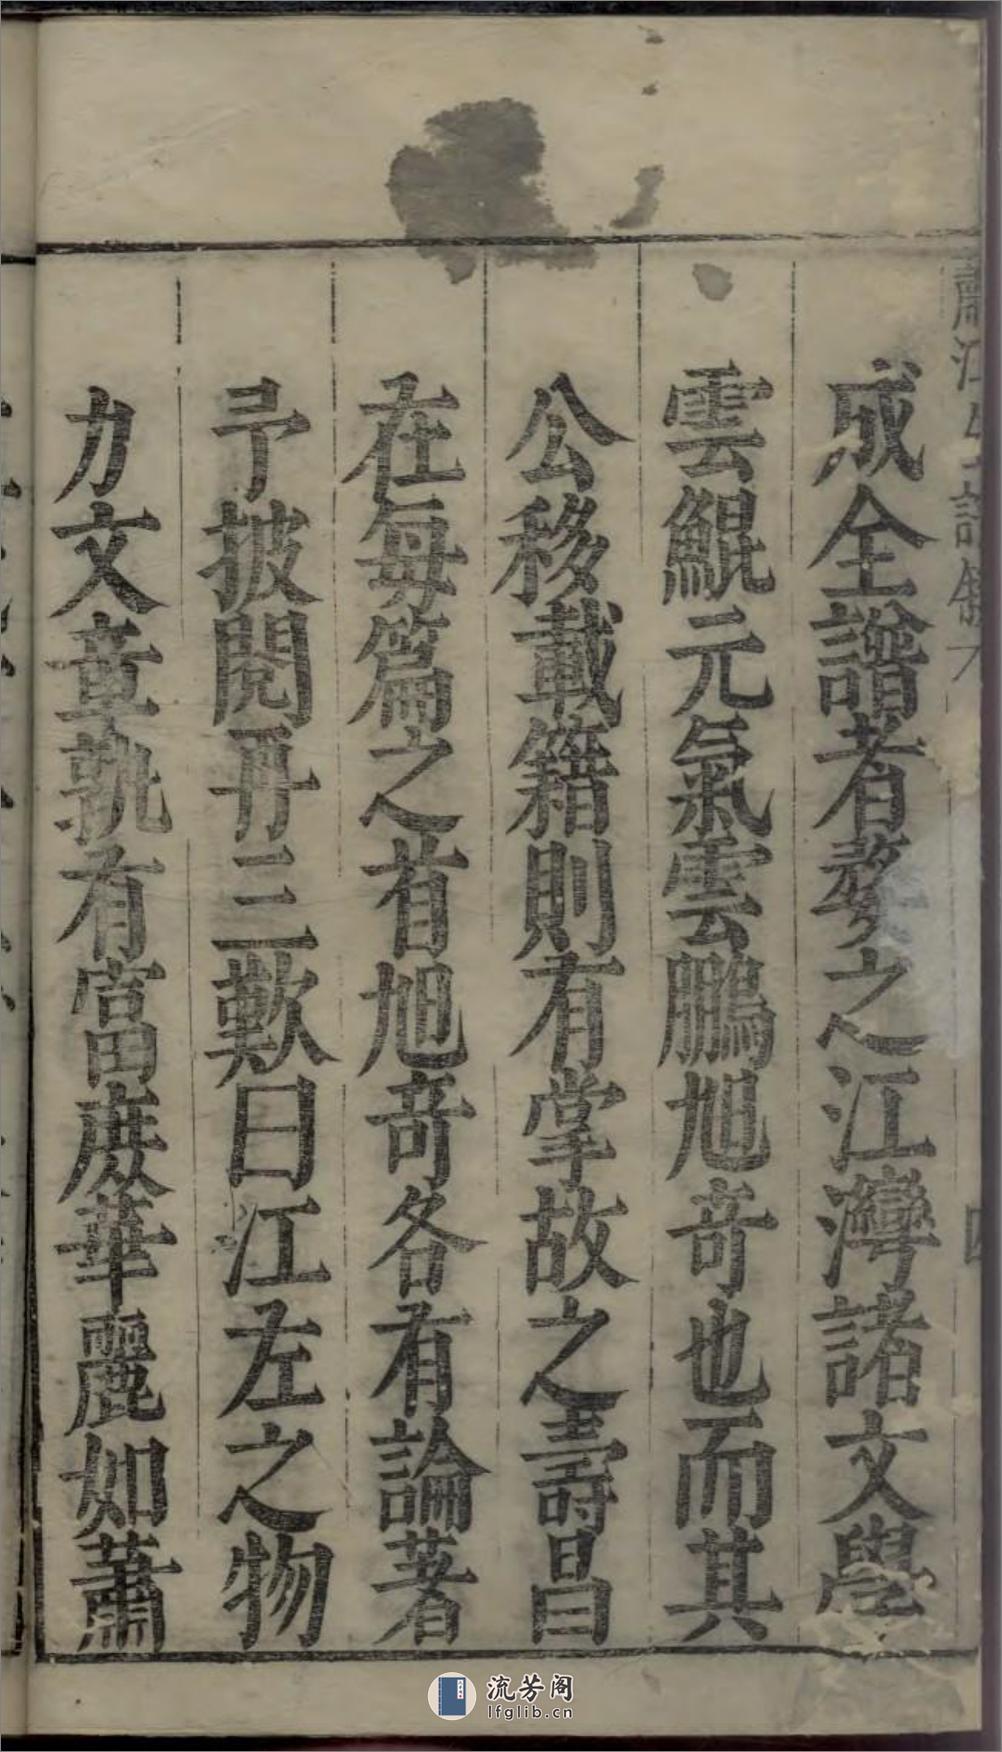 成全譜者婺之江灣諸文學
雲鯤元氣雲鵬旭竒也而其
公移載籍則有掌故之壽昌
在每篇之首旭竒各有論著
予披閱再三歎曰江左之物
力文章孰有富庶華麗如蕭
流芳阁
lfglib.cn